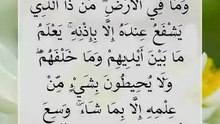 وَمَا فِي الْأَرْضِ ۗ مَن ذَا الَّذِي
يَشْفَعُ عِندَهُ إِلَّا بِإِذْنِهِ ۚ يَعْلَمُ
مَا بَيْنَ أَيْدِيهِمْ وَمَا خَلْفَهُمْ ۖ
وَلَا يُحِيطُونَ بِشَيْءٍ مِّنْ
عِلْمِهِ إِلَّا بِمَا شَاءَ ۚ وَسِعَ